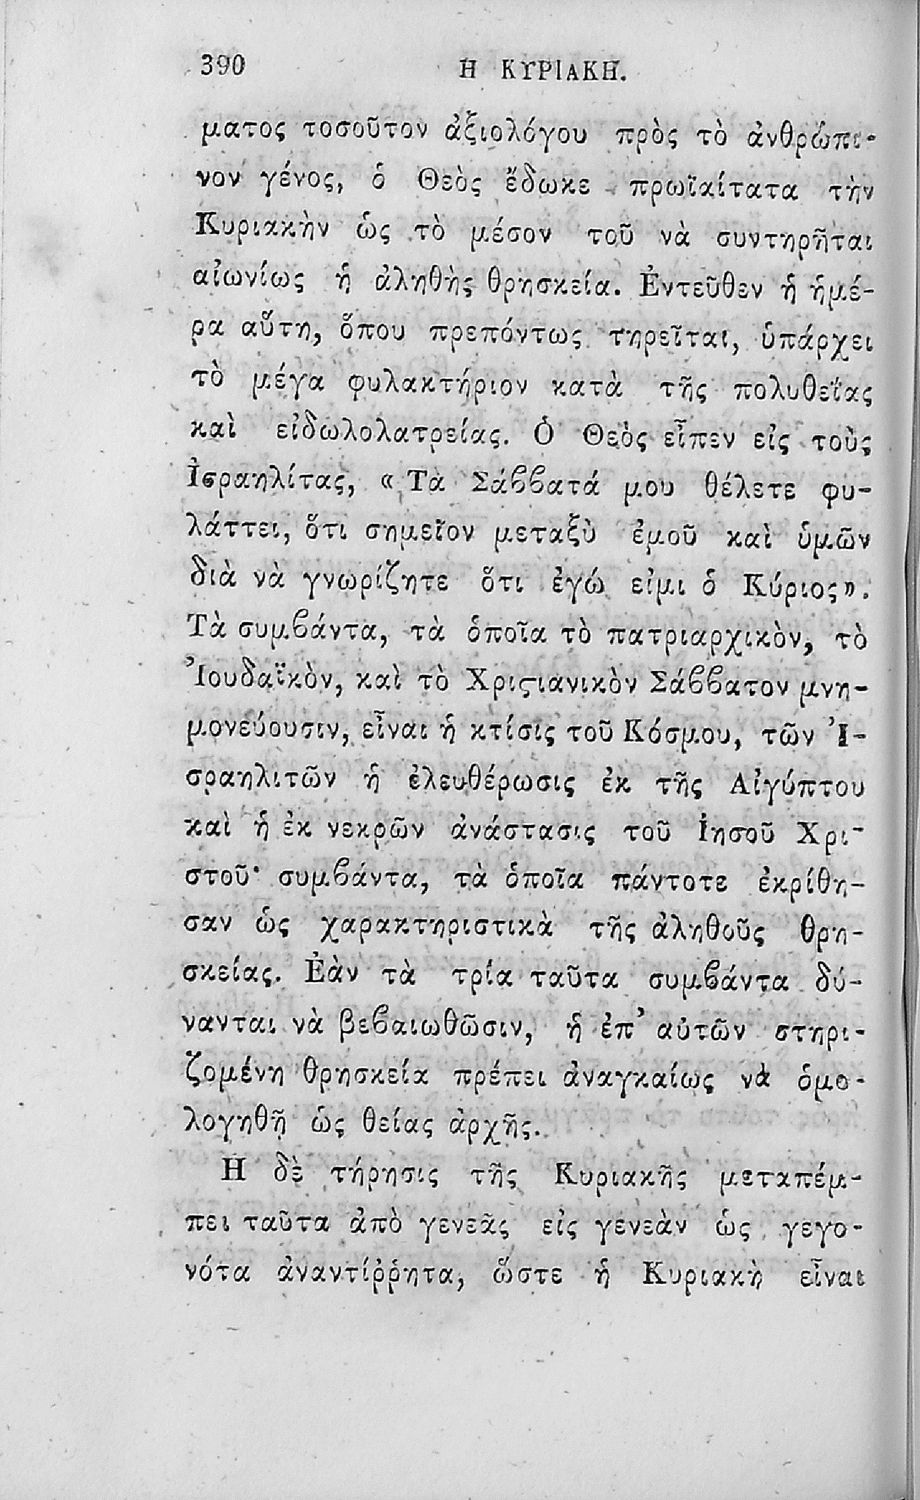 390 Η ΚΥΡΙΑΚΗ.
ματος τοσοῦτον ἀξιολόγου πρὸς τὸ ἀνθρώπι-
νον γένος, ὁ Θεὸς ἔδωκε πρωϊαίτατα τὴν
Κυριακὴν ὡς τὸ μέσον τοῦ νὰ συντηρῆται
αἰωνίως ἡ ἀληθὴς θρησκεία. Ἐντεῦθεν ἡ ἡμέ-
ρα αὕτη, ὅπου πρεπόντως τηρεῖται, ὑπάρχει
τὸ μέγα φυλακτήριον κατὰ τῆς πολυθεΐας
καὶ εἰδωλολατρείας. Ὁ Θεὸς εἶπεν εἰς τοὺς
Ἰσραηλίτας, « Τὰ Σάββατά μου θέλετε φυ-
λάττει, ὅτι σημεῖον μεταξὺ ἐμοῦ καὶ ὑμῶν
διὰ νὰ γνωρίζητε ὅτι ἐγώ εἰμι ὁ Κύριος».
Τὰ συμβάντα, τὰ ὁποῖα τὸ πατριαρχικὸν, τὸ
Ἰουδαϊκὸν, καὶ τὸ Χριϛιανικὸν Σάββατον μνη-
μονεύουσιν, εἶναι ἡ κτίσις τοῦ Κόσμου, τῶν Ἰ-
σραηλιτῶν ἡ ἐλευθέρωσις ἐκ τῆς Αἰγύπτου
καὶ ἡ ἐκ νεκρῶν ἀνάστασις τοῦ Ἰησοῦ Χρι-
στοῦ· συμβάντα, τὰ ὁποῖα πάντοτε ἐκρίθη-
σαν ὡς χαρακτηριστικὰ τῆς ἀληθοῦς θρη-
σκείας. Ἐὰν τὰ τρία ταῦτα συμβάντα δύ-
νανται νὰ βεβαιωθῶσιν, ἡ ἐπ’ αὐτῶν στηρι-
ζομένη θρησκεία πρέπει ἀναγκαίως νὰ ὁμο-
λογηθῇ ὡς θείας ἀρχῆς.
Η δὲ τήρησις τῆς Κυριακῆς μεταπέμ-
πει ταῦτα ἀπὸ γενεᾶς εἰς γενεὰν ὡς γεγο-
νότα ἀναντίῤῥητα, ὥστε ἡ Κυριακὴ εἶναι